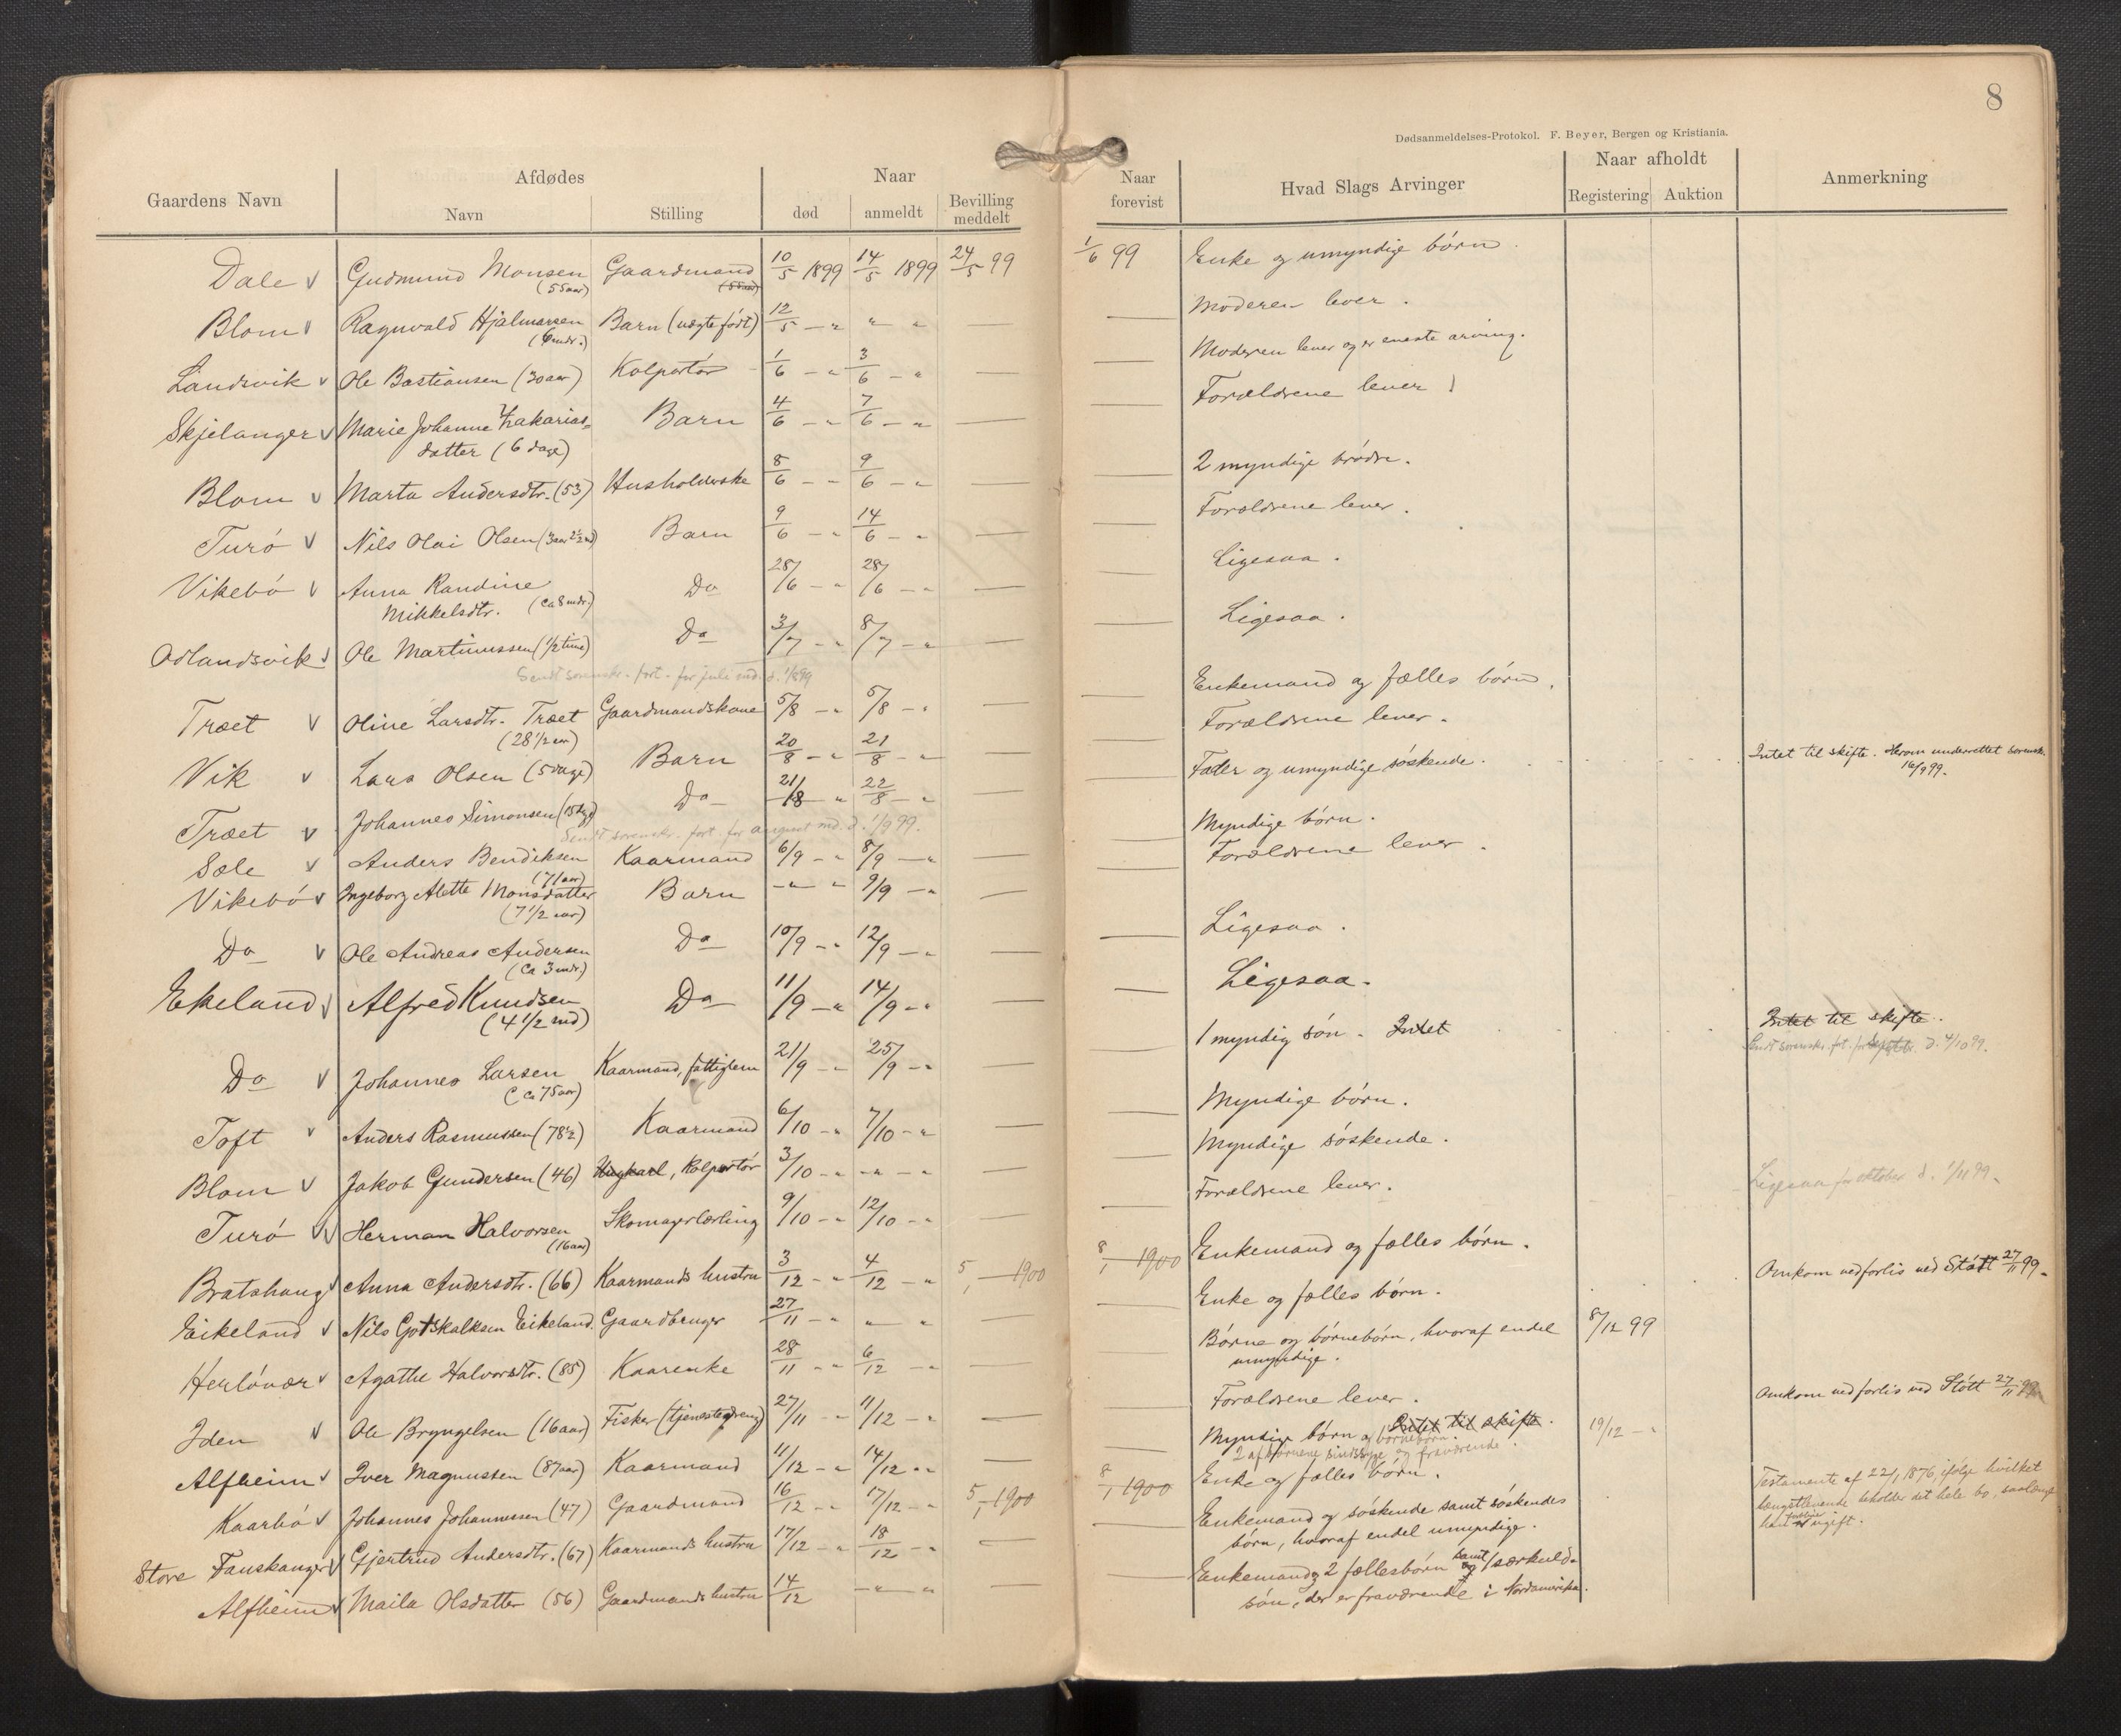 8
Dødsanmeldelses-Protokol. F. Beyer, Bergen og Kristiania.
Gaardens Navn Afdødes Naar Naar forevist Hvad Slags Arvinger Naar afholdt Anmerkning
Navn Stilling død anmeldt Bevilling meddelt Registering Auktion
Dale v Gudmund Monsen (55 aar) Gaardmand (55 aar) 10/5 1899 14/5 1899 24/5 99 1/6 99 Enke og umyndige børn.
Blom v Ragnvald Hjalmarsen (6 mdr.) Barn (uægte født) 12/5 — " " " — Moderen lever.
Landsvik v Ole Bastiansen (30 aar) Kolportør 1/6 — " 3/6 — " — — Moderen lever og er eneste arving.
Skjelanger v Marie Johanne Zakarias=
datter (6 dage) Barn 4/6 — " 7/6 — " — — Forældrene lever
Blom v Marta Andersdtr. (53) Husholderske 8/6 — " 9/6 — " — — 2 myndige brødre.
Turö v Nils Olai Olsen (3 aar 2½ md) Barn 9/6 — " 14/6 — " — — Forældrene lever.
Vikebö v Anna Randine
Mikkelsdtr. (ca 8 mdr.) Do 28/6 — " 28/6 — " — — Ligesaa.
Odlandsvik v Ole Martinussen (1/2 time) Do 3/7 — " 8/7 — " — — Ligesaa.
Sendt sorenskr. fort. for juli md. d. 1/8 99
Træet v Oline Larsdtr. Træet (28 1/2 aar) Gaardmandskone 5/8 — " 5/8 — " — — Enkemand og fælles børn.
Vik v Lars Olsen (5 dage) Barn 20/8 — " 21/8 — " — — Forældrene lever.
Træet v Johannes Simonsen Do 21/8 — " 22/8 — " — — Fader og umyndige søskende. Intet til skifte. Herom underrettet sorenskr. 16/9 99.
Sendt sorenskr. fort. for august md. d. 1/9 99.
Sæle v Anders Bendiksen (71 aar) Kaarmand 6/9 — " 8/9 — " — — Myndige børn.
Vikebö v Ingeborg Alette Monsdatter (7 1/2 aar) Barn — " — " 9/9 — " — — Forældrene lever.
Do v Ole Andreas Andersen (ca 3 mdr.) Do 10/9 — " 12/9 — " — — Ligesaa.
Ekeland v Alfred Knudsen (4 1/2 md) Do 11/9 — " 14/9 — " — — Ligesaa.
Do v Johannes Larsen (ca 75 aar) Kaarmand, fattiglem 21/9 — " 25/9 — " — — 1 myndig søn. Intet Intet til skifte.
Sendt sorenskr. fort. for septbr. d. 4/10 99.
Toft v Anders Rasmussen (78½) Kaarmand 6/10 — " 7/10 — " — — Myndige børn.
Blom v Jakob Gundersen (46) Ungkarl, Kolportør 3/10 — " — " — " — — Myndige søskende.
Turö v Herman Halvorsen (16 aar) Skomagerlærling 9/10 — " 12/10 — " — — Forældrene lever. Ligesaa for oktober d. 1/11 99.
Bratshaug v Anna Andersdtr. (66) Kaarmands hustru 3/12 — " 4/12 — " 5/1 — 1900 8/1 — 1900 Enkemand og fælles børn.
Eikeland v Nils Gotskalksen Eikeland. Gaardbruger 27/11 — " " " — — Enke og fælles børn. Omkom ved forlis ved Støtt 27/11 99.
Herlövær v Agathe Halvorsdtr. (85) Kaarenke 28/11 — " 6/12 — " — — Børne og børnebørn, hvoraf endel
umyndige. 8/12 99
Iden v Ole Bryngelsen (16 aar) Fisker (tjenestedreng) 27/11 — " 11/12 — " — — Forældrene lever. Omkom ved forlis ved Støtt 27/11 99.
Alfheim v Iver Magnussen (87 aar) Kaarmand 11/12 — " 14/12 — " — — Myndige børn og børnebørn. Intet til skifte. 19/12 — "
2 af børnene sindssyge og fraværende.
Kaarbö v Johannes Johannessen (47) Gaardmand 16/12 — " 17/12 — " 5/1 1900 8/1 1900 Enke og fælles børn. Testamente af 22/1 1876, ifølge hvilket
længstlevende beholder det hele bo, saalænge
ugift.
Store Fanskanger v Gjertrud Andersdtr. (67) Kaarmands hustru 17/12 — " 18/12 — " — — Enkemand og søskende samt søskendes
børn, hvoraf endel umyndige.
Alfheim v Maila Olsdatter (56) Gaardmands hustru 14/12 — " — " — — Enkemand og 2 fællesbørn samt 1 særkuld-
søn, der er fraværende i Nordamerika.